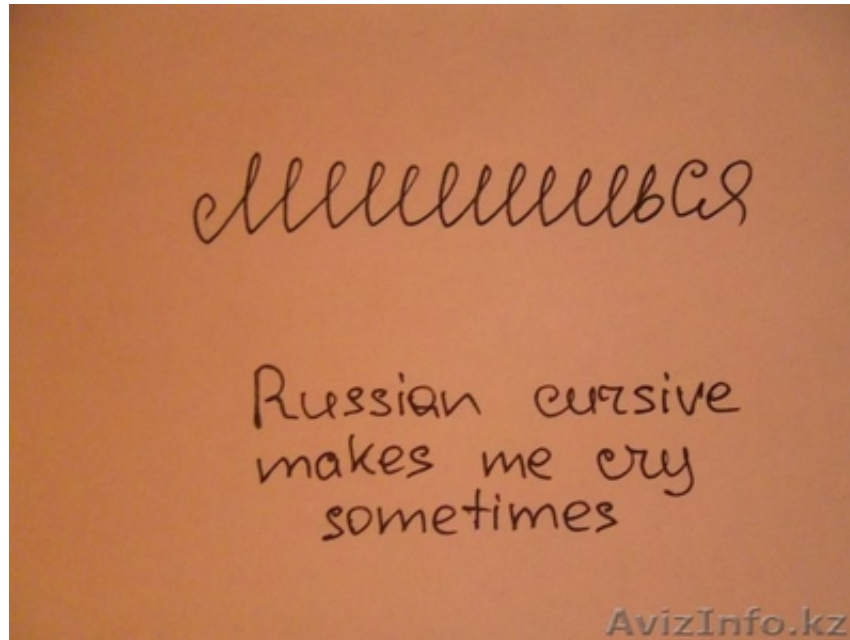 лишишься
Russian cursive
makes me cry
sometimes
AvizInfo.kz